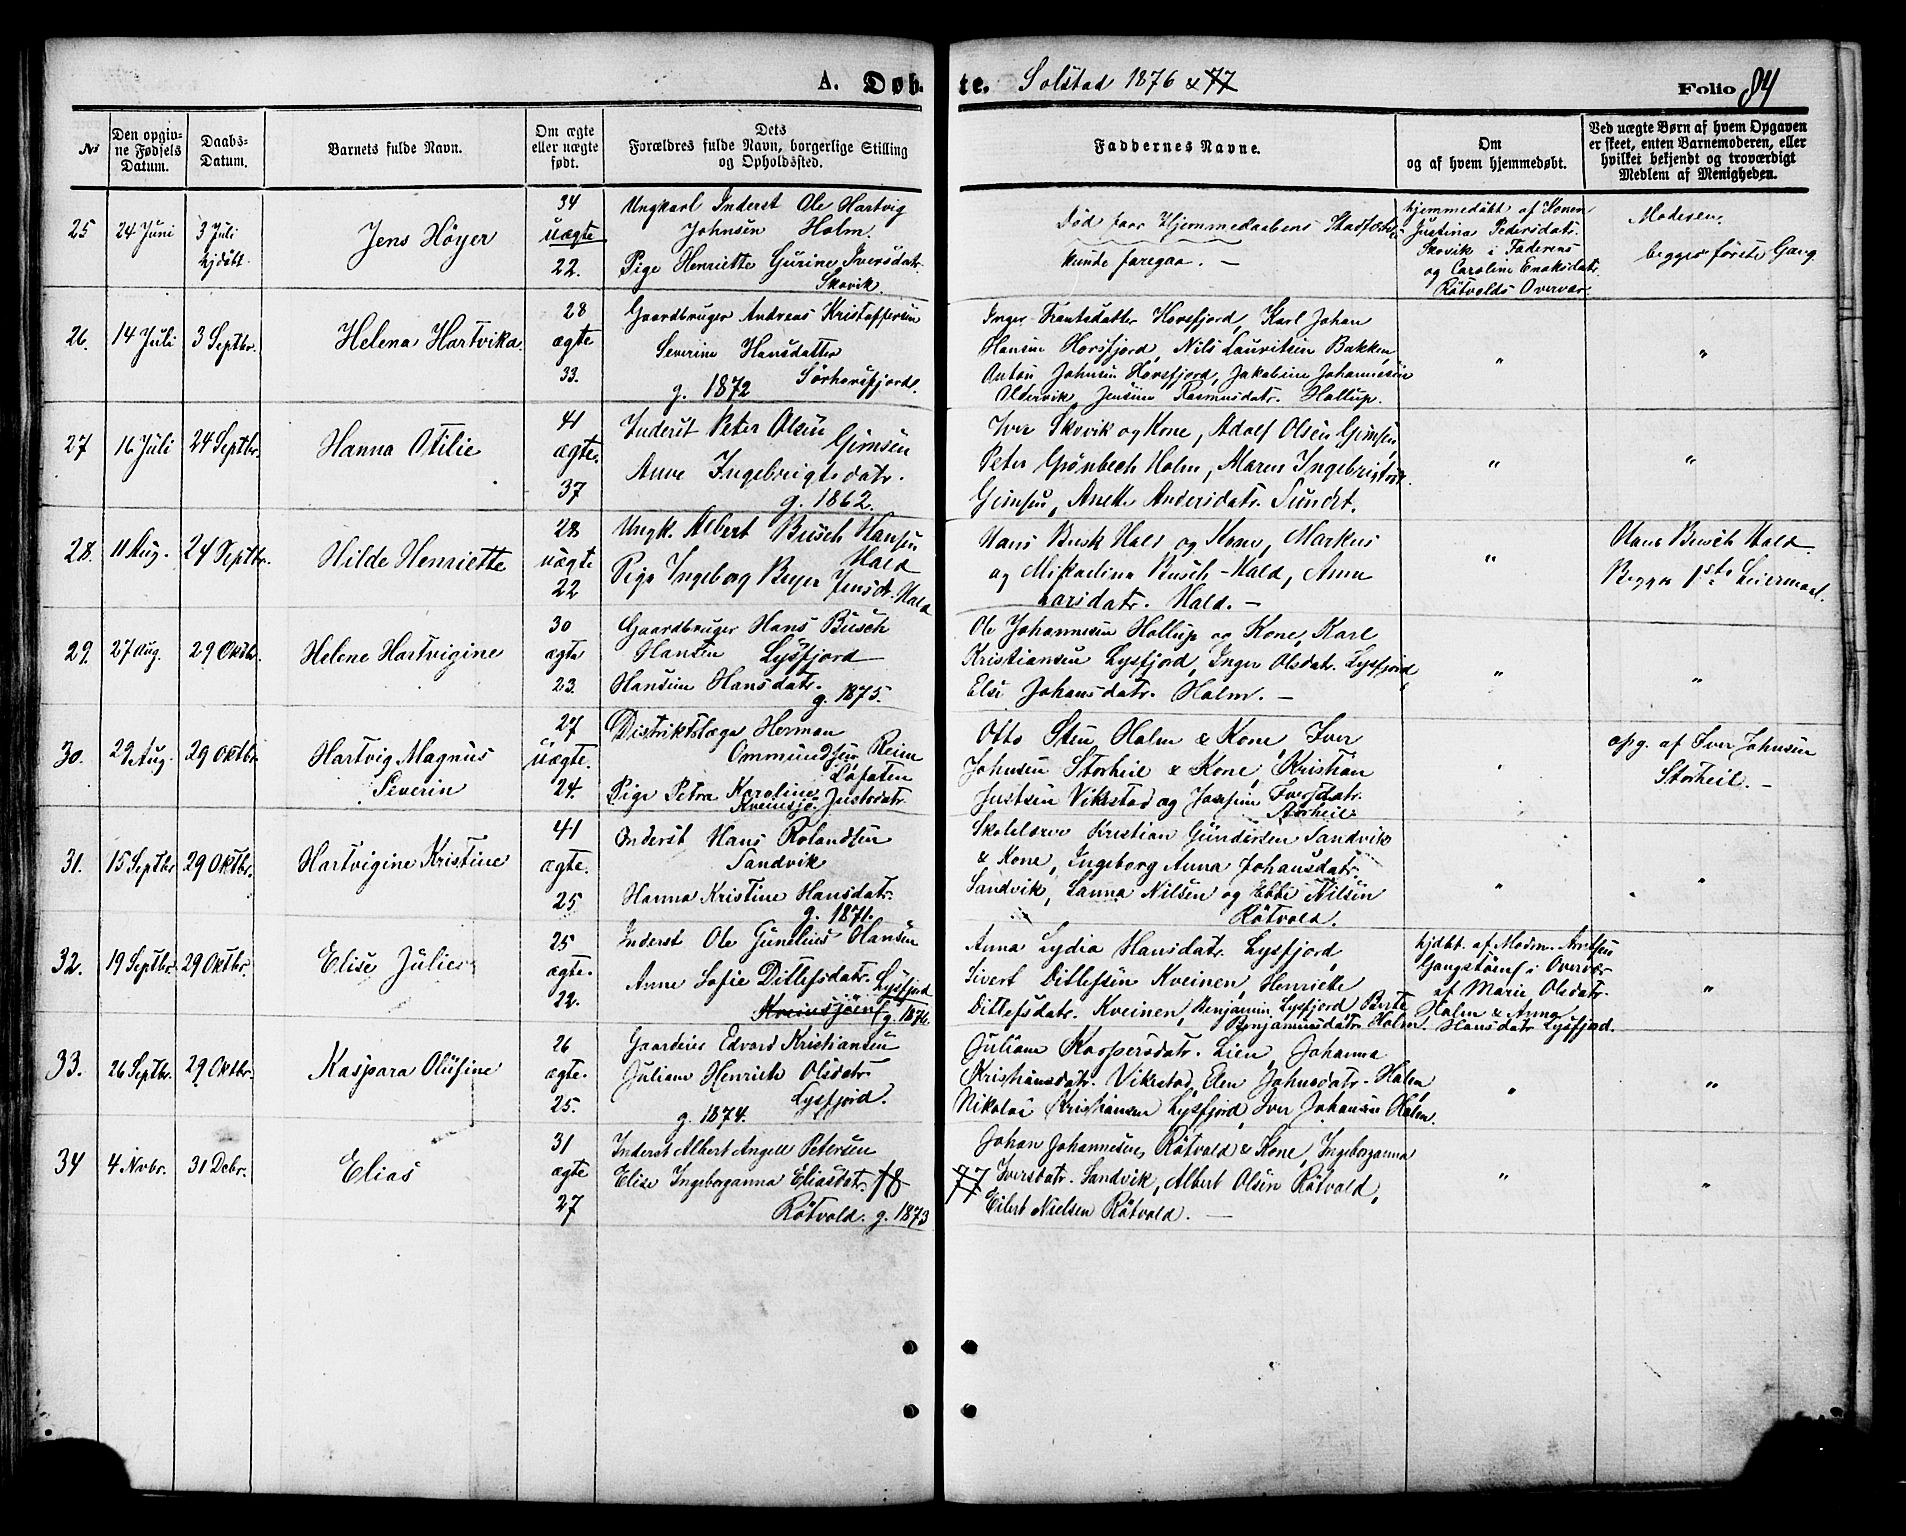 A. Døb- te. Solstad 1876 & 77 Folio 84
No
Den opgiv-
ne Fødsels
Datum.
Daabs-
Datum.
Barnets fulde Navn.
Om ægte
eller uægte
født.
Dets
Forældres fulde Navn, borgerlige Stilling
og Opholdssted.
Faddernes Navne.
Om
og af hvem hjemmedøbt.
Ved uægte Børn af hvem Opgaven
er skeet, enten Barnemoderen, eller
hvilket bekjendt og troværdigt
Medlem af Menigheden.
25 24 Juni 3 Juli
hjdøbt.
Jens Høyer
34
uægte
22.
Ungkarl Inderst Ole Hartvig
Johnsen Holm.
Pige Henriette Gurine Iversdatr.
Skovik.
Død før Hjemmedaabens
kunde foregaa. —
hjemmedøbt af Konen
Justina Pedersdatr.
Skovik i Faderens
og Caroline Enoksdatr.
Røtvolds Overvær.
Moderen.
begges første Gang
26. 14 Juli 3 Septbr.
Helena Hartvika
28
ægte
33.
Gaardbruger Andreas Kristoffersen
Severine Hansdatter
Sørhorsfjord.
g. 1872
Inger Hansdatter Horsfjord, Karl Johan
Hansen Horsfjord, Nils Lauritsen Bakken,
Anton Johnsen Horsfjord, Jakobine Johannesen
Oldervik, Jensine Rasmusdatr. Hollup.
"
"
27 16 Juli 24 Septbr.
Hanna Otilie
41
ægte.
37
Inderst Peter Olsen
Gimsen
Anne Ingebrigtsdatr.
g. 1862.
Iver Skovik og Kone, Adolf Olsen Gimsen,
Peter Grønbech Holm, Maren Ingebrigtsdr.
Gimsen, Anette Andersdatr. Sundet.
"
"
28. 11 Aug. 24 Septbr.
Hilde Henriette
28
uægte
22
Ungk. Albert Busch Hansen
Hald
Pige Ingeborg Beyer Jensdr. Hald
Hans Busch Hald og Kone, Markus
og Mikaelina Busch-Hald, Anna
Larsdatr. Hald. —
"
Hans Busch Hald.
Begges 1ste Leiermaal.
29. 27 Aug. 29 Oktbr.
Helene Hartvigine
30
ægte
23.
Gaardbruger Hans Busch
Hansen Lysfjord
Hansine Hansdatr.
g. 1875.
Ole Johannesen Hollup og Kone, Karl
Kristiansen Lysfjord, Inger Olsdatr. Lysfjord,
Else Johansdatr. Holm. —
"
"
30. 29 Aug. 29 Oktbr.
Hartvig Magnus
Severin
27
uægte.
24.
Distriktslæge Herman
Ommundsen Reim
Lofoten
Pige Petra Karoline Justsdatr.
Kveinsjø.
Otto Steen Holm & Kone, Iver
Johnsen Storheil & Kone, Kristian
Justsen Vikestad og Josefine Iversdatr.
Storheil.
opg. af Iver Johnsen
Storheil. —
31. 15 Septbr. 29 Oktbr.
Hartvigine Kristine
41
ægte.
25
Inderst Hans Rolandsen
Sandvik
Hanna Kristine Hansdatr.
g. 1871.
Skolelærer Kristian Gundersen Sandvik
& Kone, Ingeborg Anna Johansdatr.
Sandvik, Sanna Nilsen og Ebbe Nilsen
Røtvold.
"
"
32. 19 Septbr. 29 Oktbr.
Elise Julie
25
ægte.
22.
Inderst Ole Gunelius Hansen
Anne Sofie Ditlefsdatr. Lysfjord
Kveinsjøen g. 1876.
Anna Lydia Hansdatr. Lysfjord,
Sivert Ditlefsen Kveinen, Henriette
Ditlefsdatr. Kveinen, Benjamin Lysfjord, Berte
Benjaminsdatr. Holm.
hjdbt. af Madm. Arntsen
Gangstøen i Overvær
af Marie Olsdatr.
Holm & Anna
Hansdatr. Lysfjord.
"
33. 26 Septbr. 29 Oktbr.
Kaspara Olufine
26
ægte.
25.
Gaardeier Edvard Kristiansen
Juliane Henriette Olsdatr.
Lysfjord.
g. 1874.
Juliane Kaspersdatr. Lien, Johanna
Kristiansdatr. Vikestad, Elen Johnsdatr. Holm,
Nikolai Kristiansen Lysfjord, Iver Johansen Holm.
"
"
34 4 Nvbr. 31 Dcbr.
Elias
31
ægte
27
Inderst Albert Angell Petersen
Elise Ingeborganna Eliasdatr. 18
Røtvold. g. 1873
Johan Johannesen Røtvold & Kone, Ingeborganna
77 Iversdatr. Sandvik, Albert Olsen Røtvold,
Eilert Nielsen Røtvold. —
"
"